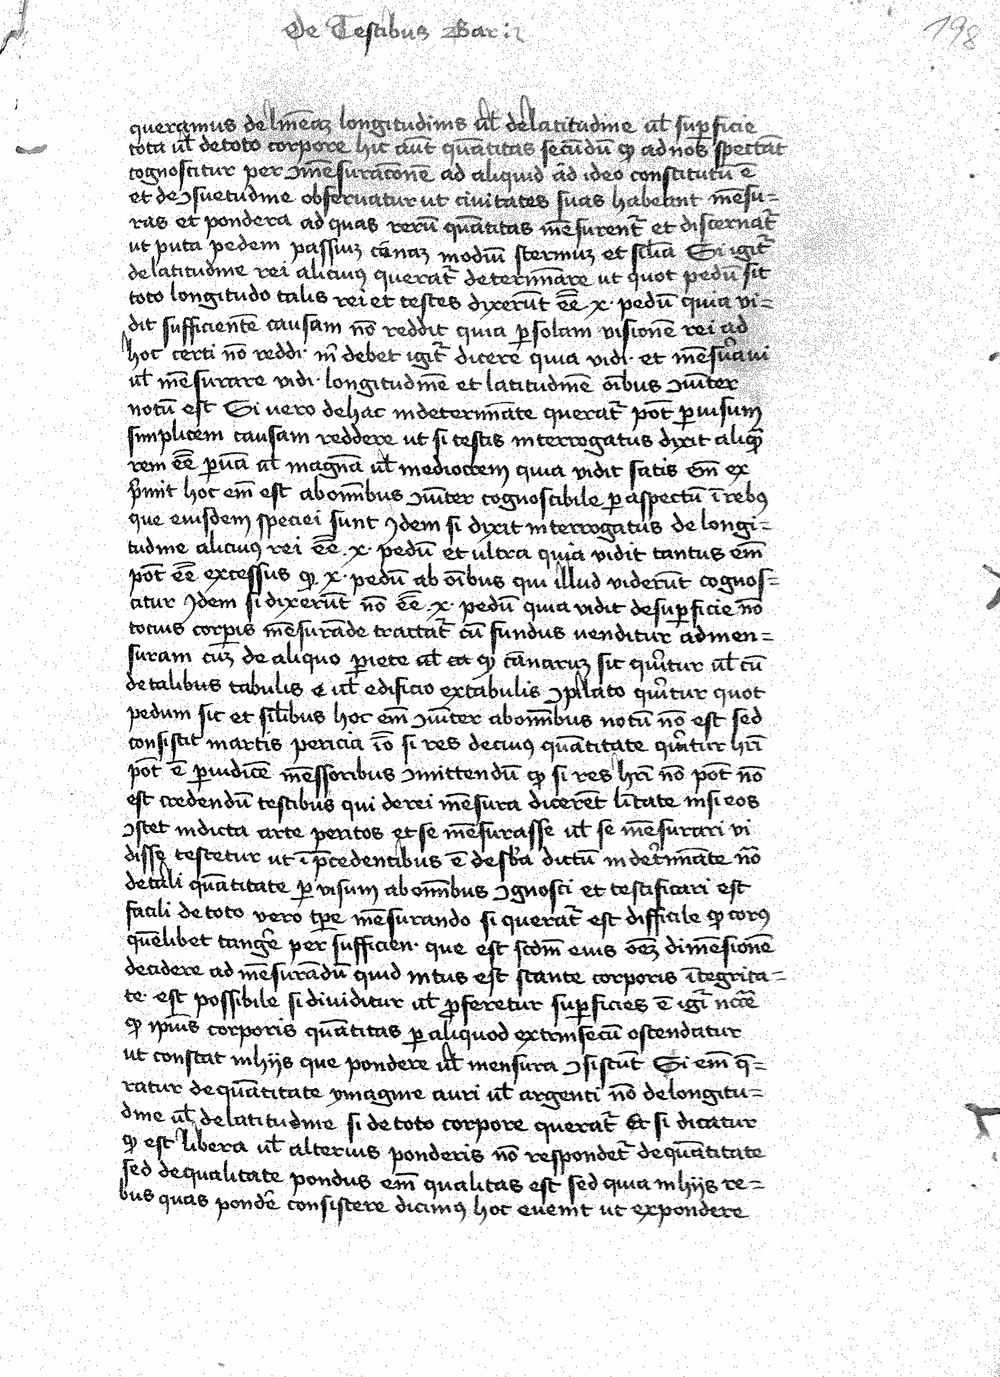 De Testibus Bar:
198
queramus de lineaꝫ longitudinis ul̄ de latitudine ul̄ suꝑficie
tota ul̄ de toto corpore hic aūt quātitas secūdū ꝙ ad nos spectāt
cognoscitur per ꝯmēsuracōnē ad aliquid ad ideo constitutū ē
et de ꝯsuetudine obseruatur ut ciuitates suas habeant mēsu=
ras et pondera ad quas rerū quātitas mēsurent᷑ et discernat᷑
ut puta pedem passuꝫ cānaꝫ modiū sternuꝫ et sīlia Si igit᷑
de latitudine rei alicuiꝰ querat᷑ determīare ut quot pedū sit
toto longitudo talis rei et testes dixerūt eē x· pedū quia vi=
dit sufficientē causam nō reddit quia ꝑ solam visionē rei ad
hoc certi nō reddi· m̄ debet igit᷑ dicere quia vidi· et mēsurāui
ul̄ mēsurare vidi· longitudinē et latitudinē oībus ꝯīter
notū est Si vero de hac indeterminate querat᷑ pōt ꝑ uisum
simplicem causam reddere ut si testis interrogatus dixit aliqā
rem eē ꝑuā ul̄ magnā ul̄ mediocrem quia vidit satis em̄ ex
prīmit hoc em̄ est ab omībus ꝯīter cognoscibile ꝑ aspectū ī rebꝰ
que eiusdem speciei sunt Idem si dixit interrogatus de longi=
tudine alicuiꝰ rei eē x· pedū et ultra quia vidit tantus em̄
pōt eē excessus ꝙ x· pedū ab oībus qui illud viderūt cognos=
citur Idem si dixerūt nō eē x· pedū quia vidit de suꝑficie nō
tocius corpis mēsurāde tractat᷑ cū fundus uenditur ad men=
suram cuꝫ de aliquo ꝑiete ul̄ ca ꝙ cānaruꝫ sit querītur ul̄ cū
de talibus tabulis ul̄ edificio ex tabulis ꝯpilato querītur quot
pedum sit et sīlibus hoc em̄ ꝯīter ab omībus notū nō est sed
consistit in artis pericia īo si res de cuiꝰ quātitate querītur hr̄i
pōt ē ꝑ iudicē mēssoribus ꝯmittendū ꝙ si res hr̄i nō pōt nō
est credendū testibus qui de rei mēsura dicerēt l̄itate nisi eos
ꝯstet in dicta arte peritos et se mēsurasse ul̄ se mēsurari vi
disse testetur ut ī p̄cedentibus ē de sbā dictū indetermīate nō
de tali quātitate ꝑ visum ab omībus ꝯgnosci et testificari est
facili de toto vero tp̄e mēsurando si querat᷑ est difficile ꝙ corꝰ
quēlibet tangē per sufficien· que est scdm̄ eius oēꝫ dimēsionē
decidere ad mēsurādū quid intus est stante corporis ītegrita=
te est possibile si diuiditur ul̄ ꝓferetur suꝑficies ē igr̄ nc̄cē
ꝙ ipius corporis quātitas ꝑ aliquod extrinsecū ostendatur
ut constat in hijs que pondere ul̄ mensura ꝯsistūt Si em̄ q̄=
ratur de quātitate ymagine auri ul̄ argenti nō de longitu=
dine ul̄ de latitudine si de toto corpore querat᷑ Et si dicatur
ꝙ est libera ul̄ alterius ponderis nō respondet᷑ de quātitate
sed de qualitate pondus em̄ qualitas est sed quia in hijs re=
bus quas pondē consistere dicimꝰ hoc euenit ut ex pondere